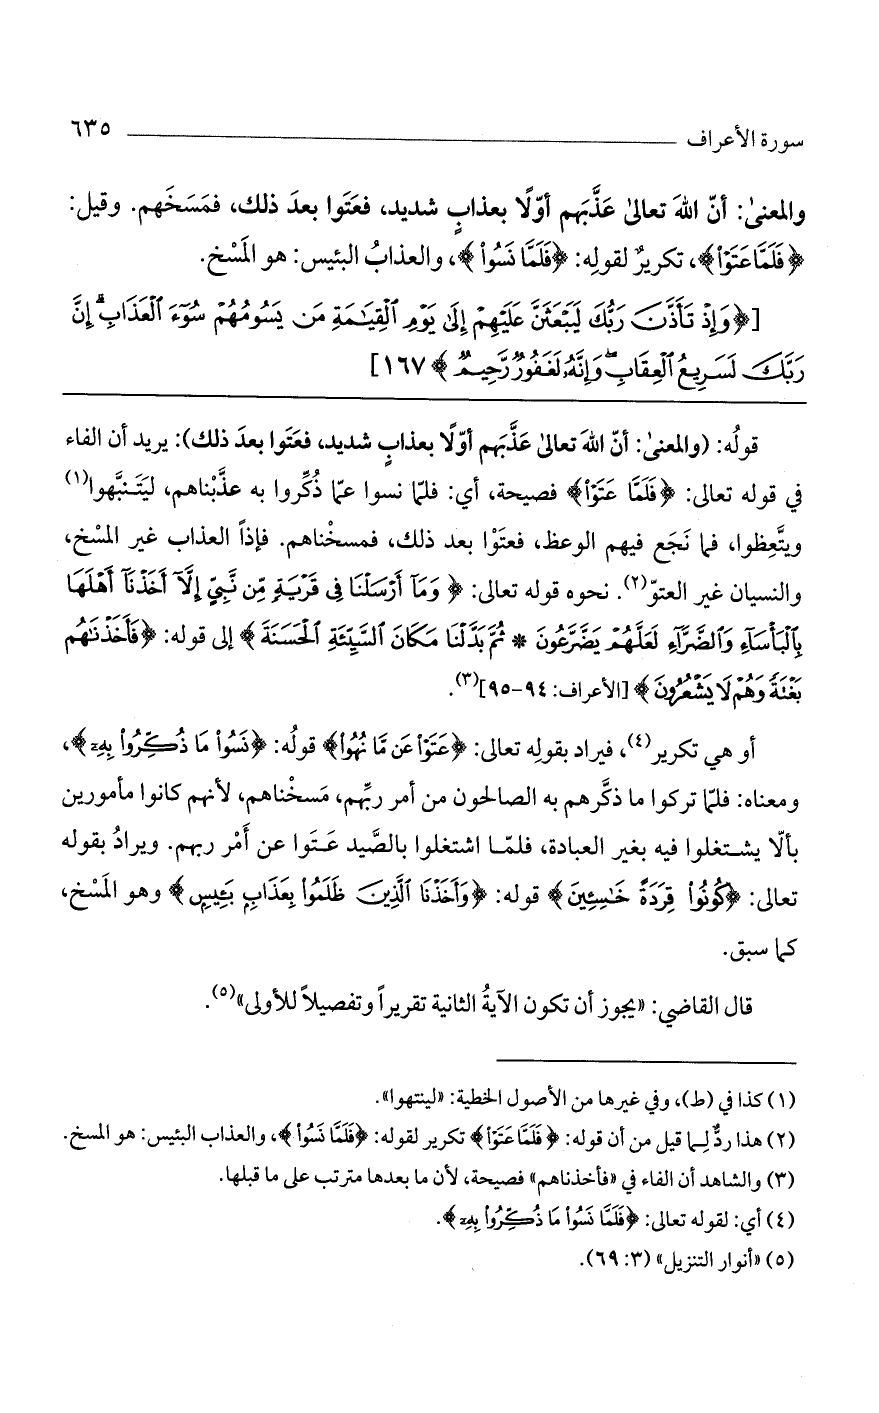 سورة الأعراف ٦٣٥
والمعنىٰ: أنّ اللهَ تعالىٰ عَذَّبَهم أوّلًا بعذابٍ شديد، فعَتَوا بعدَ ذلك، فمَسَخَهم. وقيل:
﴿فَلَمَّا عَتَوْا﴾، تكريرٌ لقولِه: ﴿فَلَمَّا نَسُوا﴾، والعذابُ البئيس: هو المَسْخ.
[﴿وَإِذْ تَأَذَّنَ رَبُّكَ لَيَبْعَثَنَّ عَلَيْهِمْ إِلَىٰ يَوْمِ الْقِيَٰمَةِ مَن يَسُومُهُمْ سُوٓءَ الْعَذَابِ ۗ إِنَّ
رَبَّكَ لَسَرِيعُ الْعِقَابِ ۖ وَإِنَّهُۥ لَغَفُورٌ رَّحِيمٌ﴾ ١٦٧]
قولُه: (والمعنىٰ: أنّ اللهَ تعالىٰ عَذَّبَهم أوّلًا بعذابٍ شديد، فعَتَوا بعدَ ذلك): يريد أن الفاء
في قوله تعالى: ﴿فَلَمَّا عَتَوْا﴾ فصيحة، أي: فلمّا نسوا عمّا ذُكِّروا به عذَّبْناهم، ليَتَنبَّهوا(١)
ويتَّعِظوا، فما نَجَع فيهم الوعظ، فعتَوْا بعد ذلك، فمسخْناهم. فإذاً العذاب غير المسْخ،
والنسيان غير العتوّ(٢). نحوه قوله تعالى: ﴿وَمَآ أَرْسَلْنَا فِى قَرْيَةٍ مِّن نَّبِىٍّ إِلَّآ أَخَذْنَآ أَهْلَهَا
بِالْبَأْسَآءِ وَالضَّرَّآءِ لَعَلَّهُمْ يَضَّرَّعُونَ * ثُمَّ بَدَّلْنَا مَكَانَ السَّيِّئَةِ الْحَسَنَةَ﴾ إلى قوله: ﴿فَأَخَذْنَٰهُم
بَغْتَةً وَهُمْ لَا يَشْعُرُونَ﴾ [الأعراف: ٩٤-٩٥](٣).
أو هي تكرير(٤)، فيراد بقولِه تعالى: ﴿عَتَوْا عَن مَّا نُهُوا﴾ قولُه: ﴿نَسُوا مَا ذُكِّرُوا بِهِۦ﴾،
ومعناه: فلمّا تركوا ما ذكَّرهم به الصالحون من أمر ربِّهم، مَسخْناهم، لأنهم كانوا مأمورين
بألّا يشتغلوا فيه بغير العبادة، فلمّا اشتغلوا بالصَّيد عَتَوا عن أَمْر ربهم. ويرادُ بقوله
تعالى: ﴿كُونُوا قِرَدَةً خَٰسِـِٔينَ﴾ قوله: ﴿وَأَخَذْنَا الَّذِينَ ظَلَمُوا بِعَذَابٍ بَـِٔيسٍ﴾ وهو المَسْخ،
كما سبق.
قال القاضي: «يجوز أن تكون الآيةُ الثانية تقريراً وتفصيلاً للأولى»(٥).
(١) كذا في (ط)، وفي غيرها من الأصول الخطية: «لينتهوا».
(٢) هذا ردٌّ لِما قيل من أن قوله: ﴿فَلَمَّا عَتَوْا﴾ تكرير لقوله: ﴿فَلَمَّا نَسُوا﴾، والعذاب البئيس: هو المسخ.
(٣) والشاهد أن الفاء في «فأخذناهم» فصيحة، لأن ما بعدها مترتب على ما قبلها.
(٤) أي: لقوله تعالى: ﴿فَلَمَّا نَسُوا مَا ذُكِّرُوا بِهِۦ﴾.
(٥) «أنوار التنزيل» (٣: ٦٩).